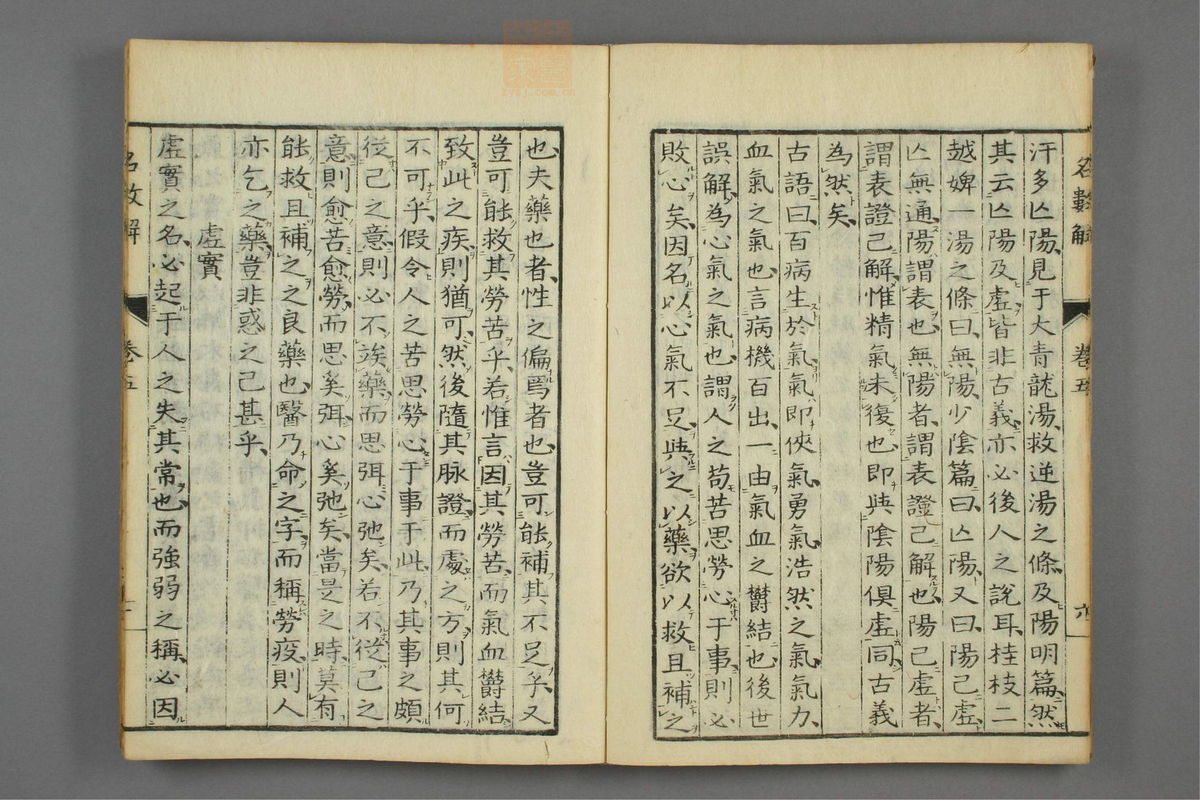 名數解 卷五 六
汗多亾陽、見于大青龍湯、救逆湯之條、及陽明篇、然
其云亾陽及虛、皆非古義、亦必後人之說耳、桂枝二
越婢一湯之條曰、無陽、少陰篇曰、亾陽、又曰、陽已虛、
亾無通、陽、謂表也、無陽者、謂表證已解也、陽已虛者、
謂表證已解、惟精氣未復也、即與陰陽俱虛同、古義
為然矣、
古語曰、百病生於氣、氣、即俠氣勇氣、浩然之氣、氣力、
血氣之氣也、言病機百出、一由氣血之鬱結也、後世
誤解、為心氣之氣也、謂人之苟苦思勞心于事、則必
敗心矣、因名以心氣不足、與之以藥、欲以救且補之
也、夫藥也者、性之偏焉者也、豈可能補其不足乎、又
豈可能救其勞苦乎、若惟言因其勞苦、而氣血鬱結、
致此之疾、則猶可、然後隨其脉證、而處之方、則其何
不可乎、假令人之苦思勞心于事、于此乃其事之頗
從己之意、則必不竢藥、而思弭心弛矣、若不從己之
意、則愈苦愈勞、而思奚弭、心奚弛矣、當是之時、莫有
能救且補之之良藥也、醫乃命之字而稱勞疫、則人
亦乞之藥、豈非惑之已甚乎、
虛實
虛實之名、必起于人之失其常也、而強弱之稱、必因
名數解 卷五